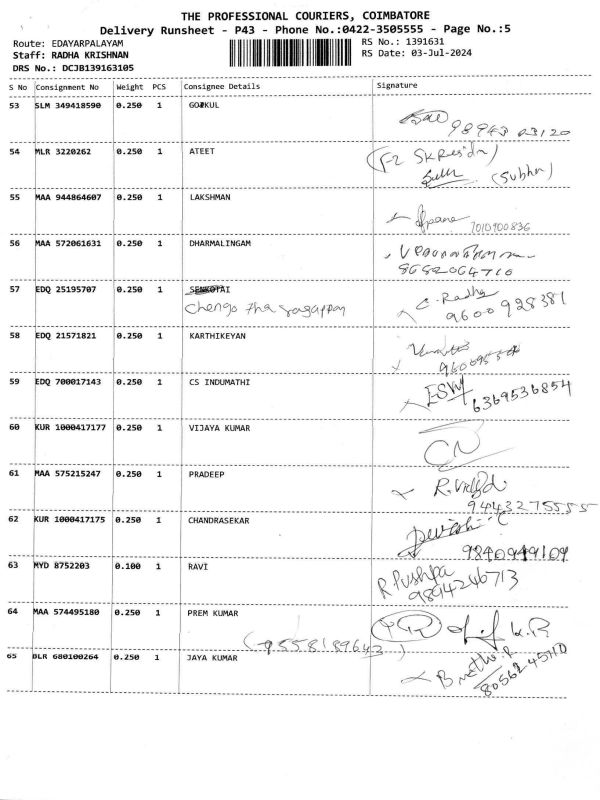 THE PROFESSIONAL COURIERS, COIMBATORE
Delivery Runsheet - P43 - Phone No.:0422-3505555 - Page No.:5
Route: EDAYARPALAYAM RS No.: 1391631
Staff: RADHA KRISHNAN RS Date: 03-Jul-2024
DRS No.: DCJB139163105
S No Consignment No Weight PCS Consignee Details Signature
53 SLM 349418590 0.250 1 GOKUL
98943 03120
54 MLR 3220262 0.250 1 ATEET
F-2 SK Residn
(Subha)
55 MAA 944864607 0.250 1 LAKSHMAN
7010900836
56 MAA 572061631 0.250 1 DHARMALINGAM
8682064710
57 EDQ 25195707 0.250 1
C. Radha
9600928381
58 EDQ 21571821 0.250 1 KARTHIKEYAN
59 EDQ 700017143 0.250 1 CS INDUMATHI
6369536854
60 KUR 1000417177 0.250 1 VIJAYA KUMAR
61 MAA 575215247 0.250 1 PRADEEP
9443275555
62 KUR 1000417175 0.250 1 CHANDRASEKAR
9840949109
63 MYD 8752203 0.100 1 RAVI
R Pushpa
9894246713
64 MAA 574495180 0.250 1 PREM KUMAR
K.R
9558189643
65 BLR 680100264 0.250 1 JAYA KUMAR